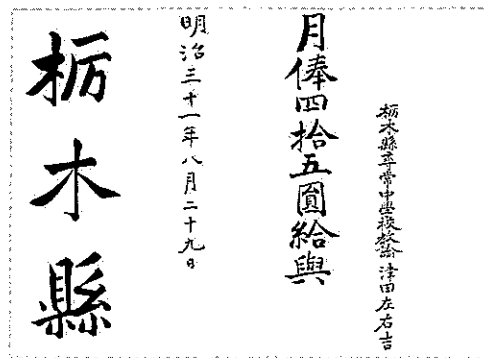 栃木縣尋常中學校教諭 津田左右吉
月俸四拾五圓給與
明治三十一年八月二十九日
栃木縣